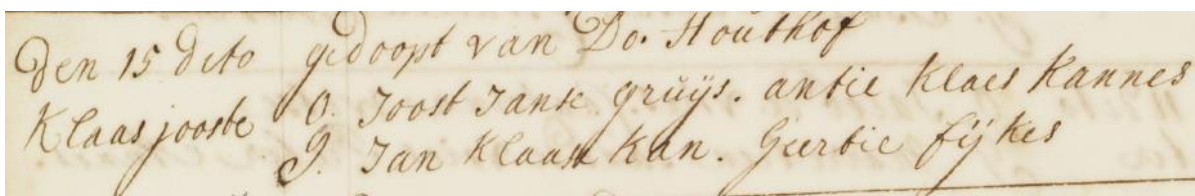 Den 15 dito gedoopt van Do. Houthof
Klaas jooste O. Joost Janse gruÿs. antie Klaes Kannes
G. Jan Klaase Kan. Geertie fÿkes